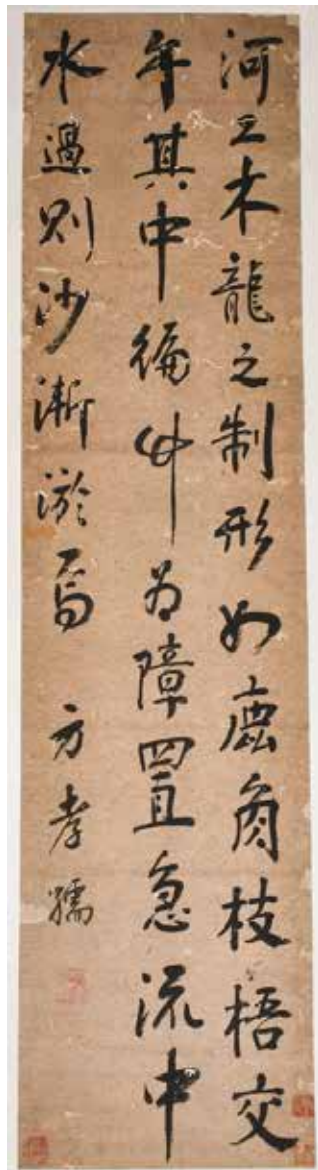 河工木龍之制形如鹿角枝梧交
午其中編竹為障置急流中
水過則沙漸淤焉 方孝孺